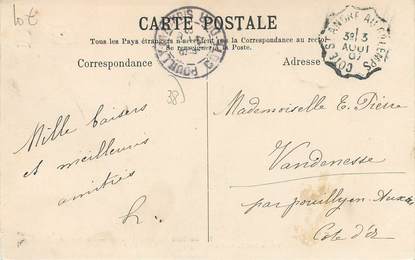 10€
CARTE POSTALE
Tous les Pays étrangers n'acceptent pas la Correspondance au recto.
Se renseigner à la Poste.
Correspondance
Adresse
COTE ST ANDRE AU
3
AOUT
07
POUILLY
38
Mademoiselle E. Pierre
Vandenesse
par pouilly en Auxois
Cote d'Or
Mille baisers
et meilleures
amitiés